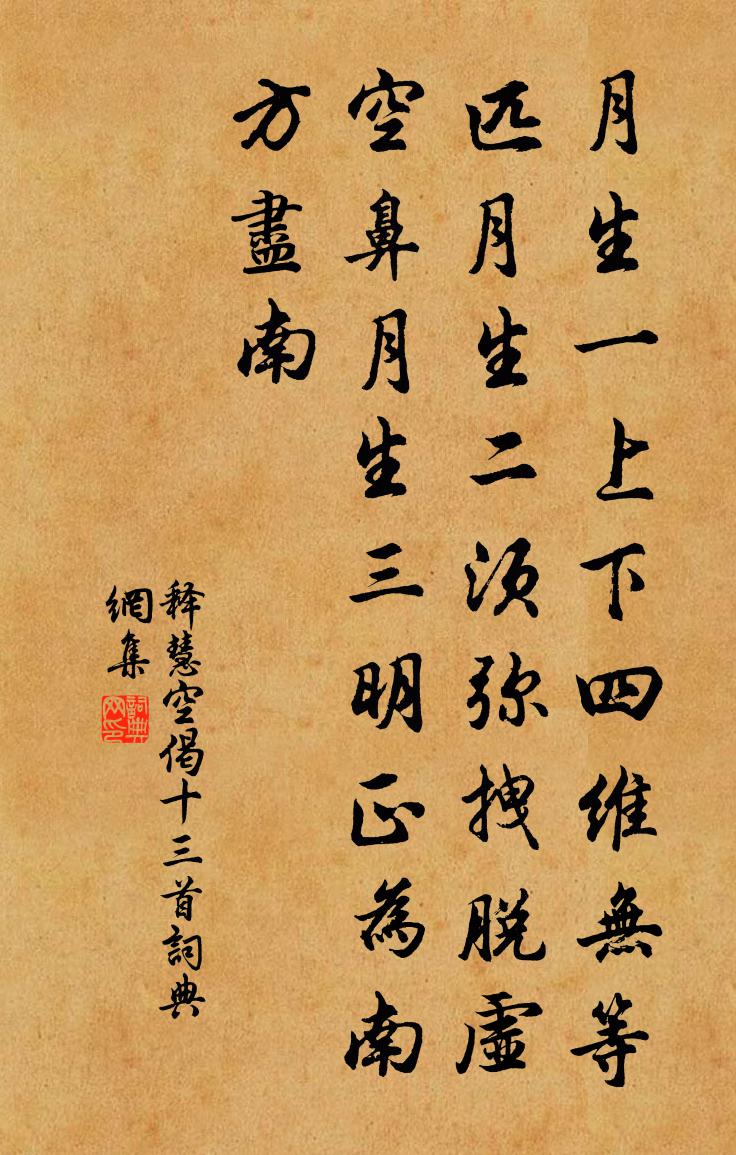 月生一上下四維無等
匹月生二須弥拽脱虚
空鼻月生三明正為南
方盡南
释慧空偈十三首詞典
網集
詞典
网印